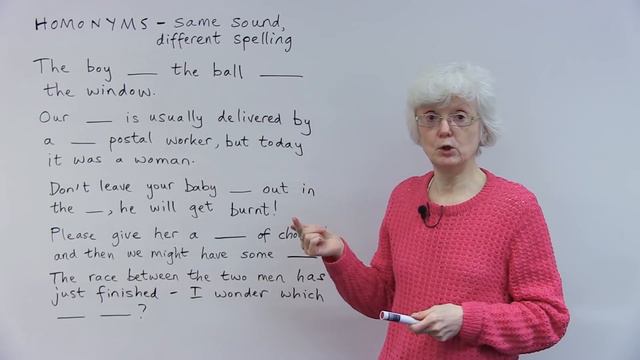 HOMONYMS - same sound,
different spelling
The boy __ the ball ___
the window.
Our __ is usually delivered by
a __ postal worker, but today
it was a woman.
Don't leave your baby __ out in
the __, he will get burnt!
Please give her a ___ of
and then we might have some ___
The race between the two men has
just finished - I wonder which
__ __ ?